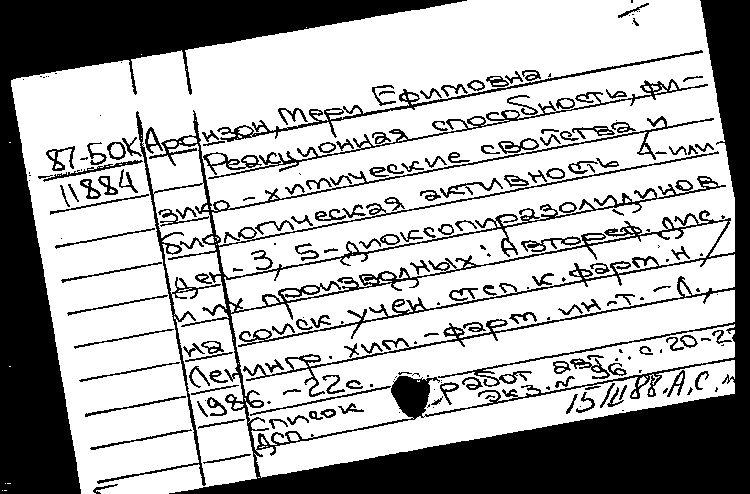 87-БОК
11884
Аронзон, Мери Ефимовна.
Реакционная способность, фи-
зико-химические свойства и
биологическая активность 4-или-
ден-3, 5-диоксопиразолидинов
и их производных: Автореф. дис.
на соиск. учен. степ. к. фарм. н. /
Ленингр. хим.-фарм. ин-т. - Л.,
1986. - 22 с.
Список работ авт.: с. 20-22
ДСП. экз. N 96.
15/II 88. А.С.